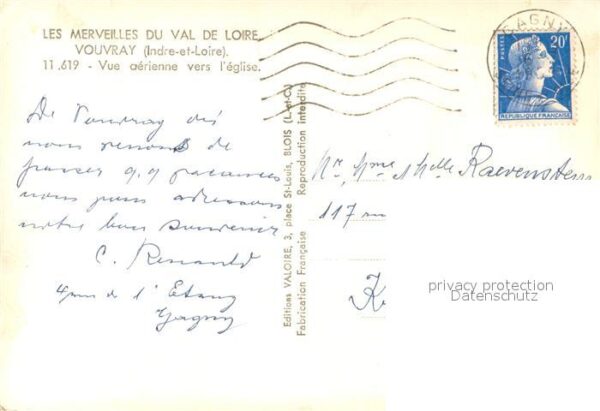 LES MERVEILLES DU VAL DE LOIRE
VOUVRAY (Indre-et-Loire).
11.619 - Vue aérienne vers l'église.
De Vouvray où
nous venons de
passer q.q vacances
nous vous adressons
notre bon souvenir
C. Renauld
4 rue de l'Etang
Gagny
Editions VALOIRE, 3, place St-Louis, BLOIS (L.-et-C.)
Fabrication Française Reproduction interdite
GAGNY
POSTES
20F
REPUBLIQUE FRANÇAISE
Mr, Mme & Melle Raevenstens
117 rue
K
privacy protection
Datenschutz